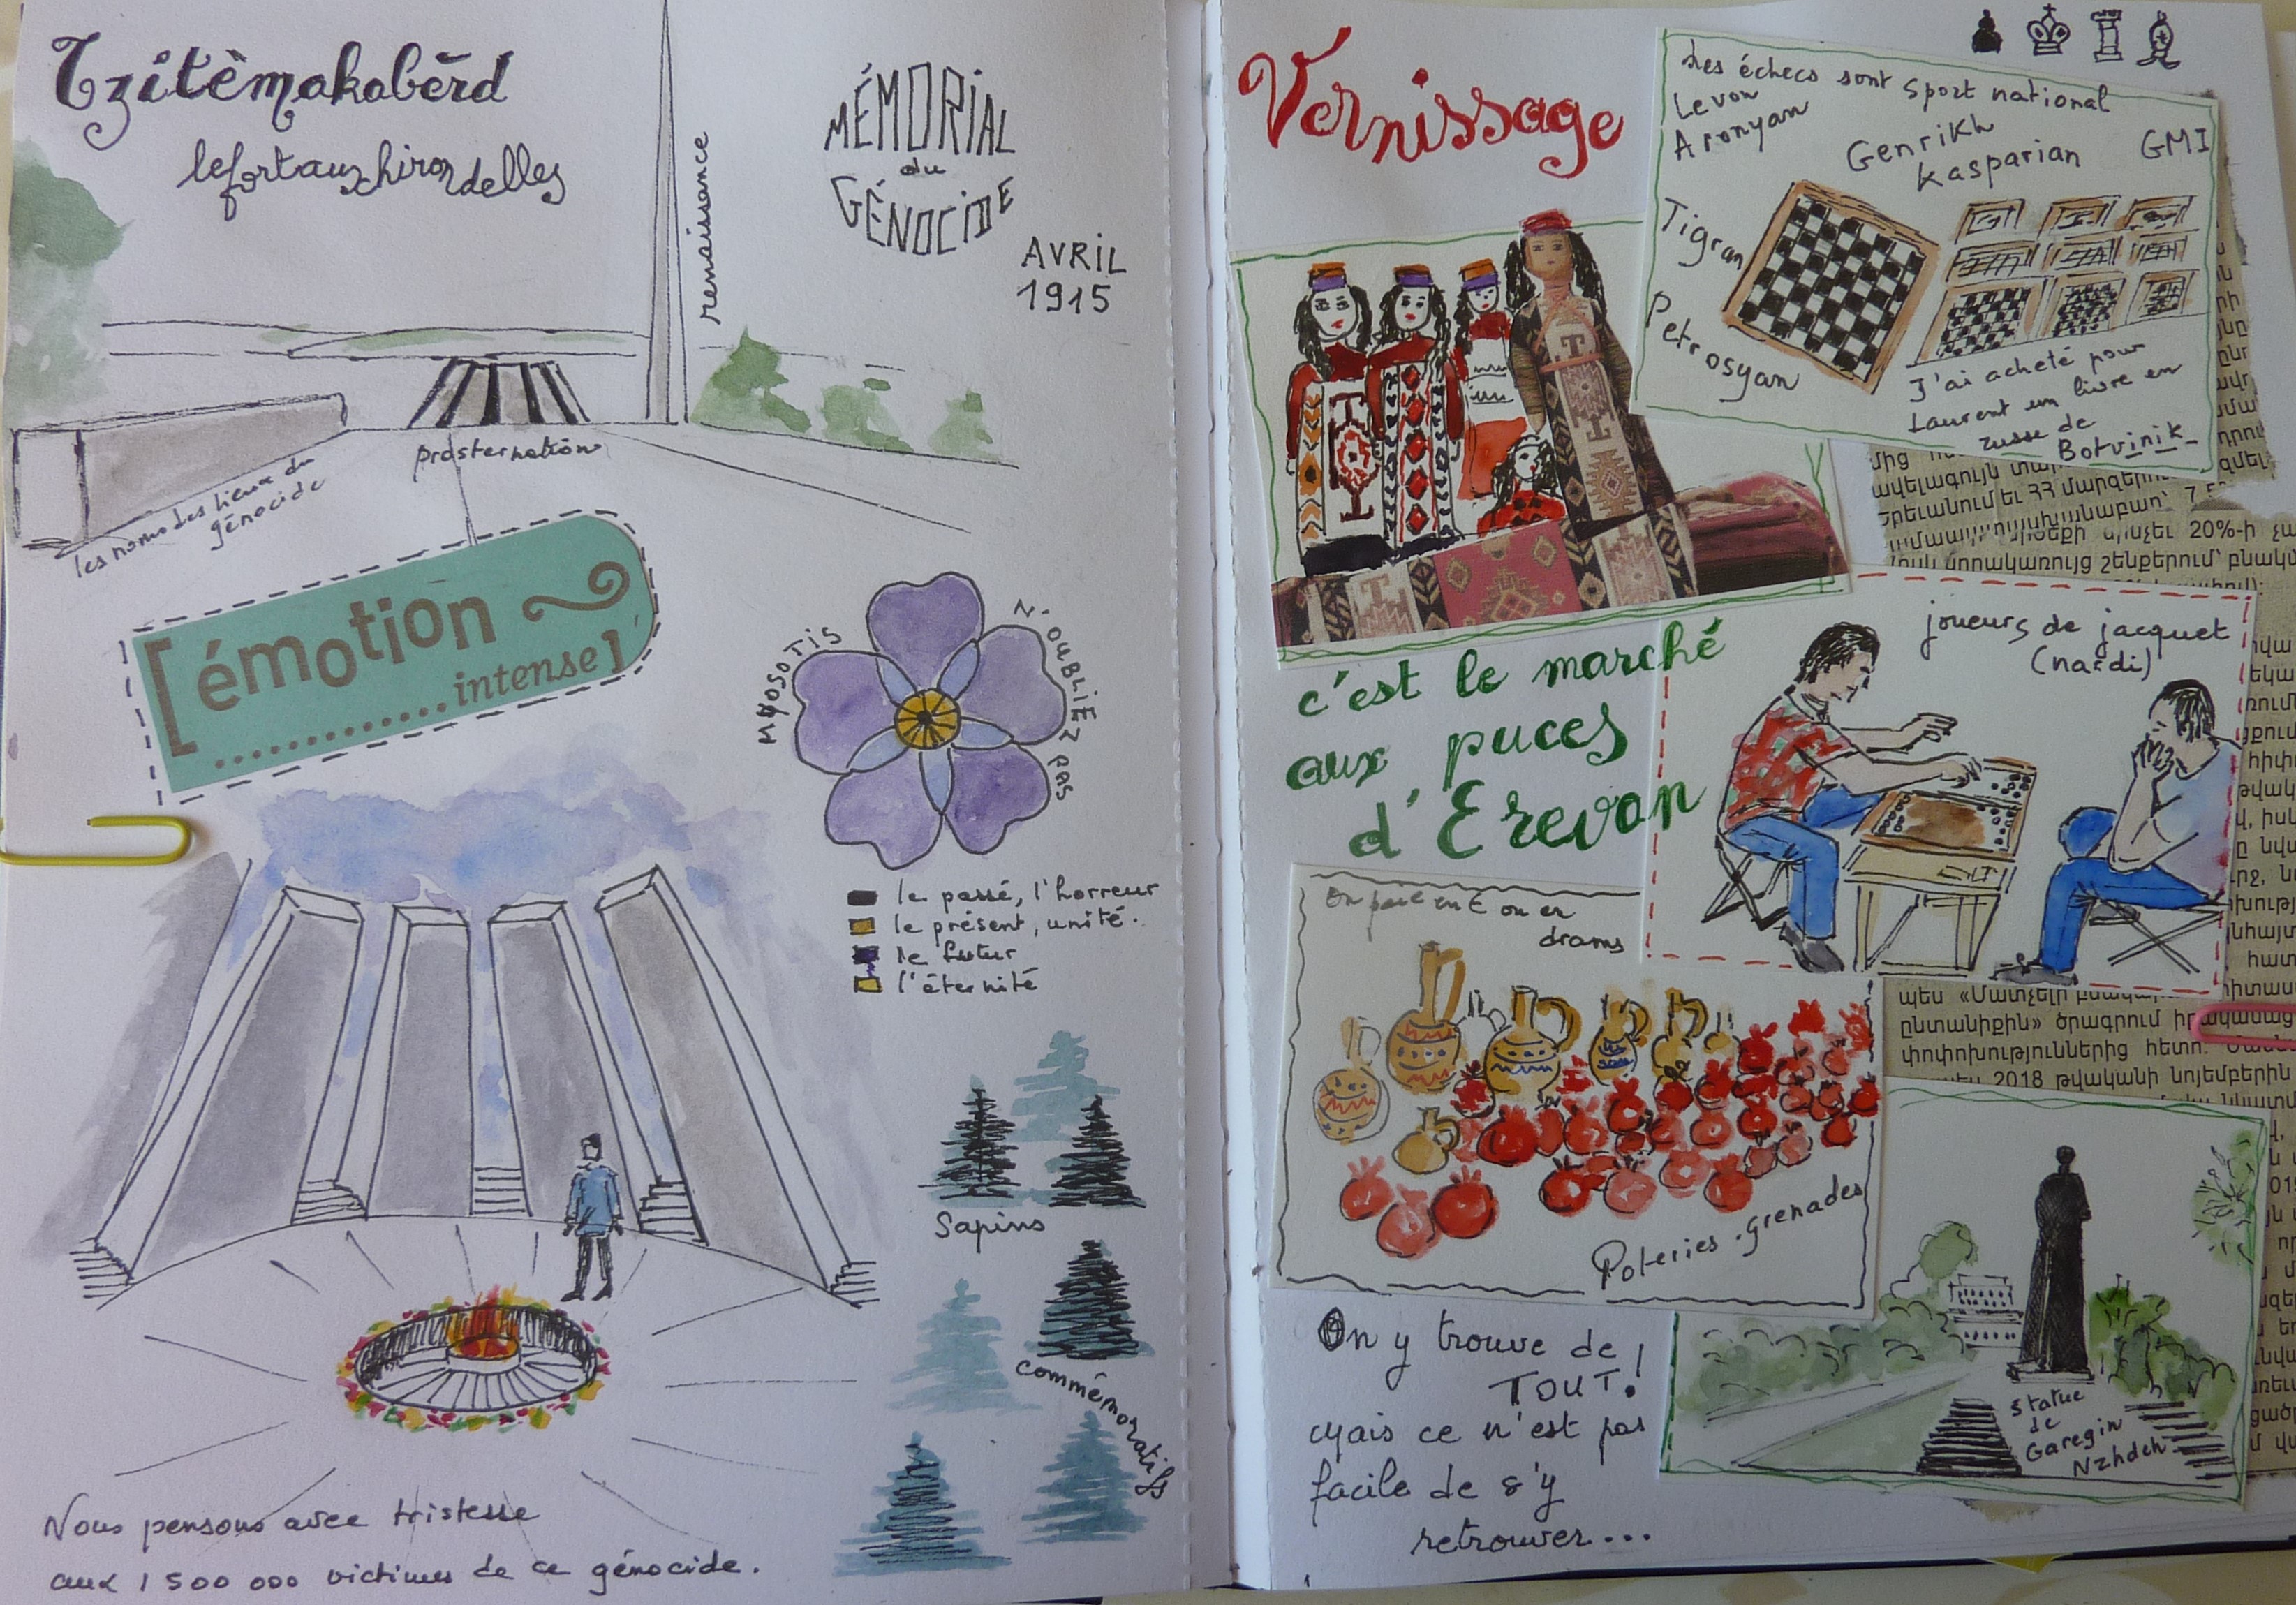 Tzitèmakabèrd
le fort aux hirondelles
renaissance
MÉMORIAL
du
GÉNOCIDE
AVRIL
1915
prosternation
les noms des lieux du
génocide
[émotion
...........intense]
MYOSOTIS
N'OUBLIEZ PAS
le passé, l'horreur
le présent, unité.
le futur
l'éternité
Sapins
commémoratifs
Nous pensons avec tristesse
aux 1 500 000 victimes de ce génocide.
Vernissage
Les échecs sont sport national
Levon
Aronyan
Genrikh
Kasparian
GMI
Tigran
Petrosyan
J'ai acheté pour
Laurent un livre en
russe de
Botvinik_
c'est le marché
aux puces
d'Erevan
joueurs de jacquet
(nardi)
On paie en € ou en
drams
Poteries - grenades
On y trouve de
TOUT!
Mais ce n'est pas
facile de s'y
retrouver...
Statue
de
Garegin
Nzhdeh
մից
ավելագույն
Երեւանում եւ ՀՀ մարզերում
20%-ի
շենքերում՝ բնակ
պես «Մատչելի
ընտանիքին» ծրագրում իրականաց
փոփոխություններից հետո:
2018 թվականի նոյեմբերին